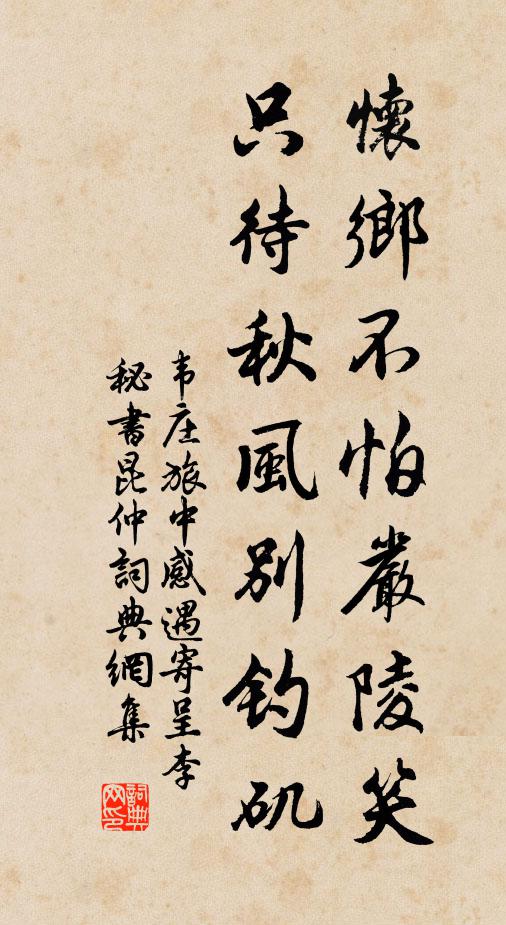 懷鄉不怕嚴陵笑
只待秋風別钓矶
韦庄旅中感遇寄呈李
秘書昆仲詞典網集
詞典網印